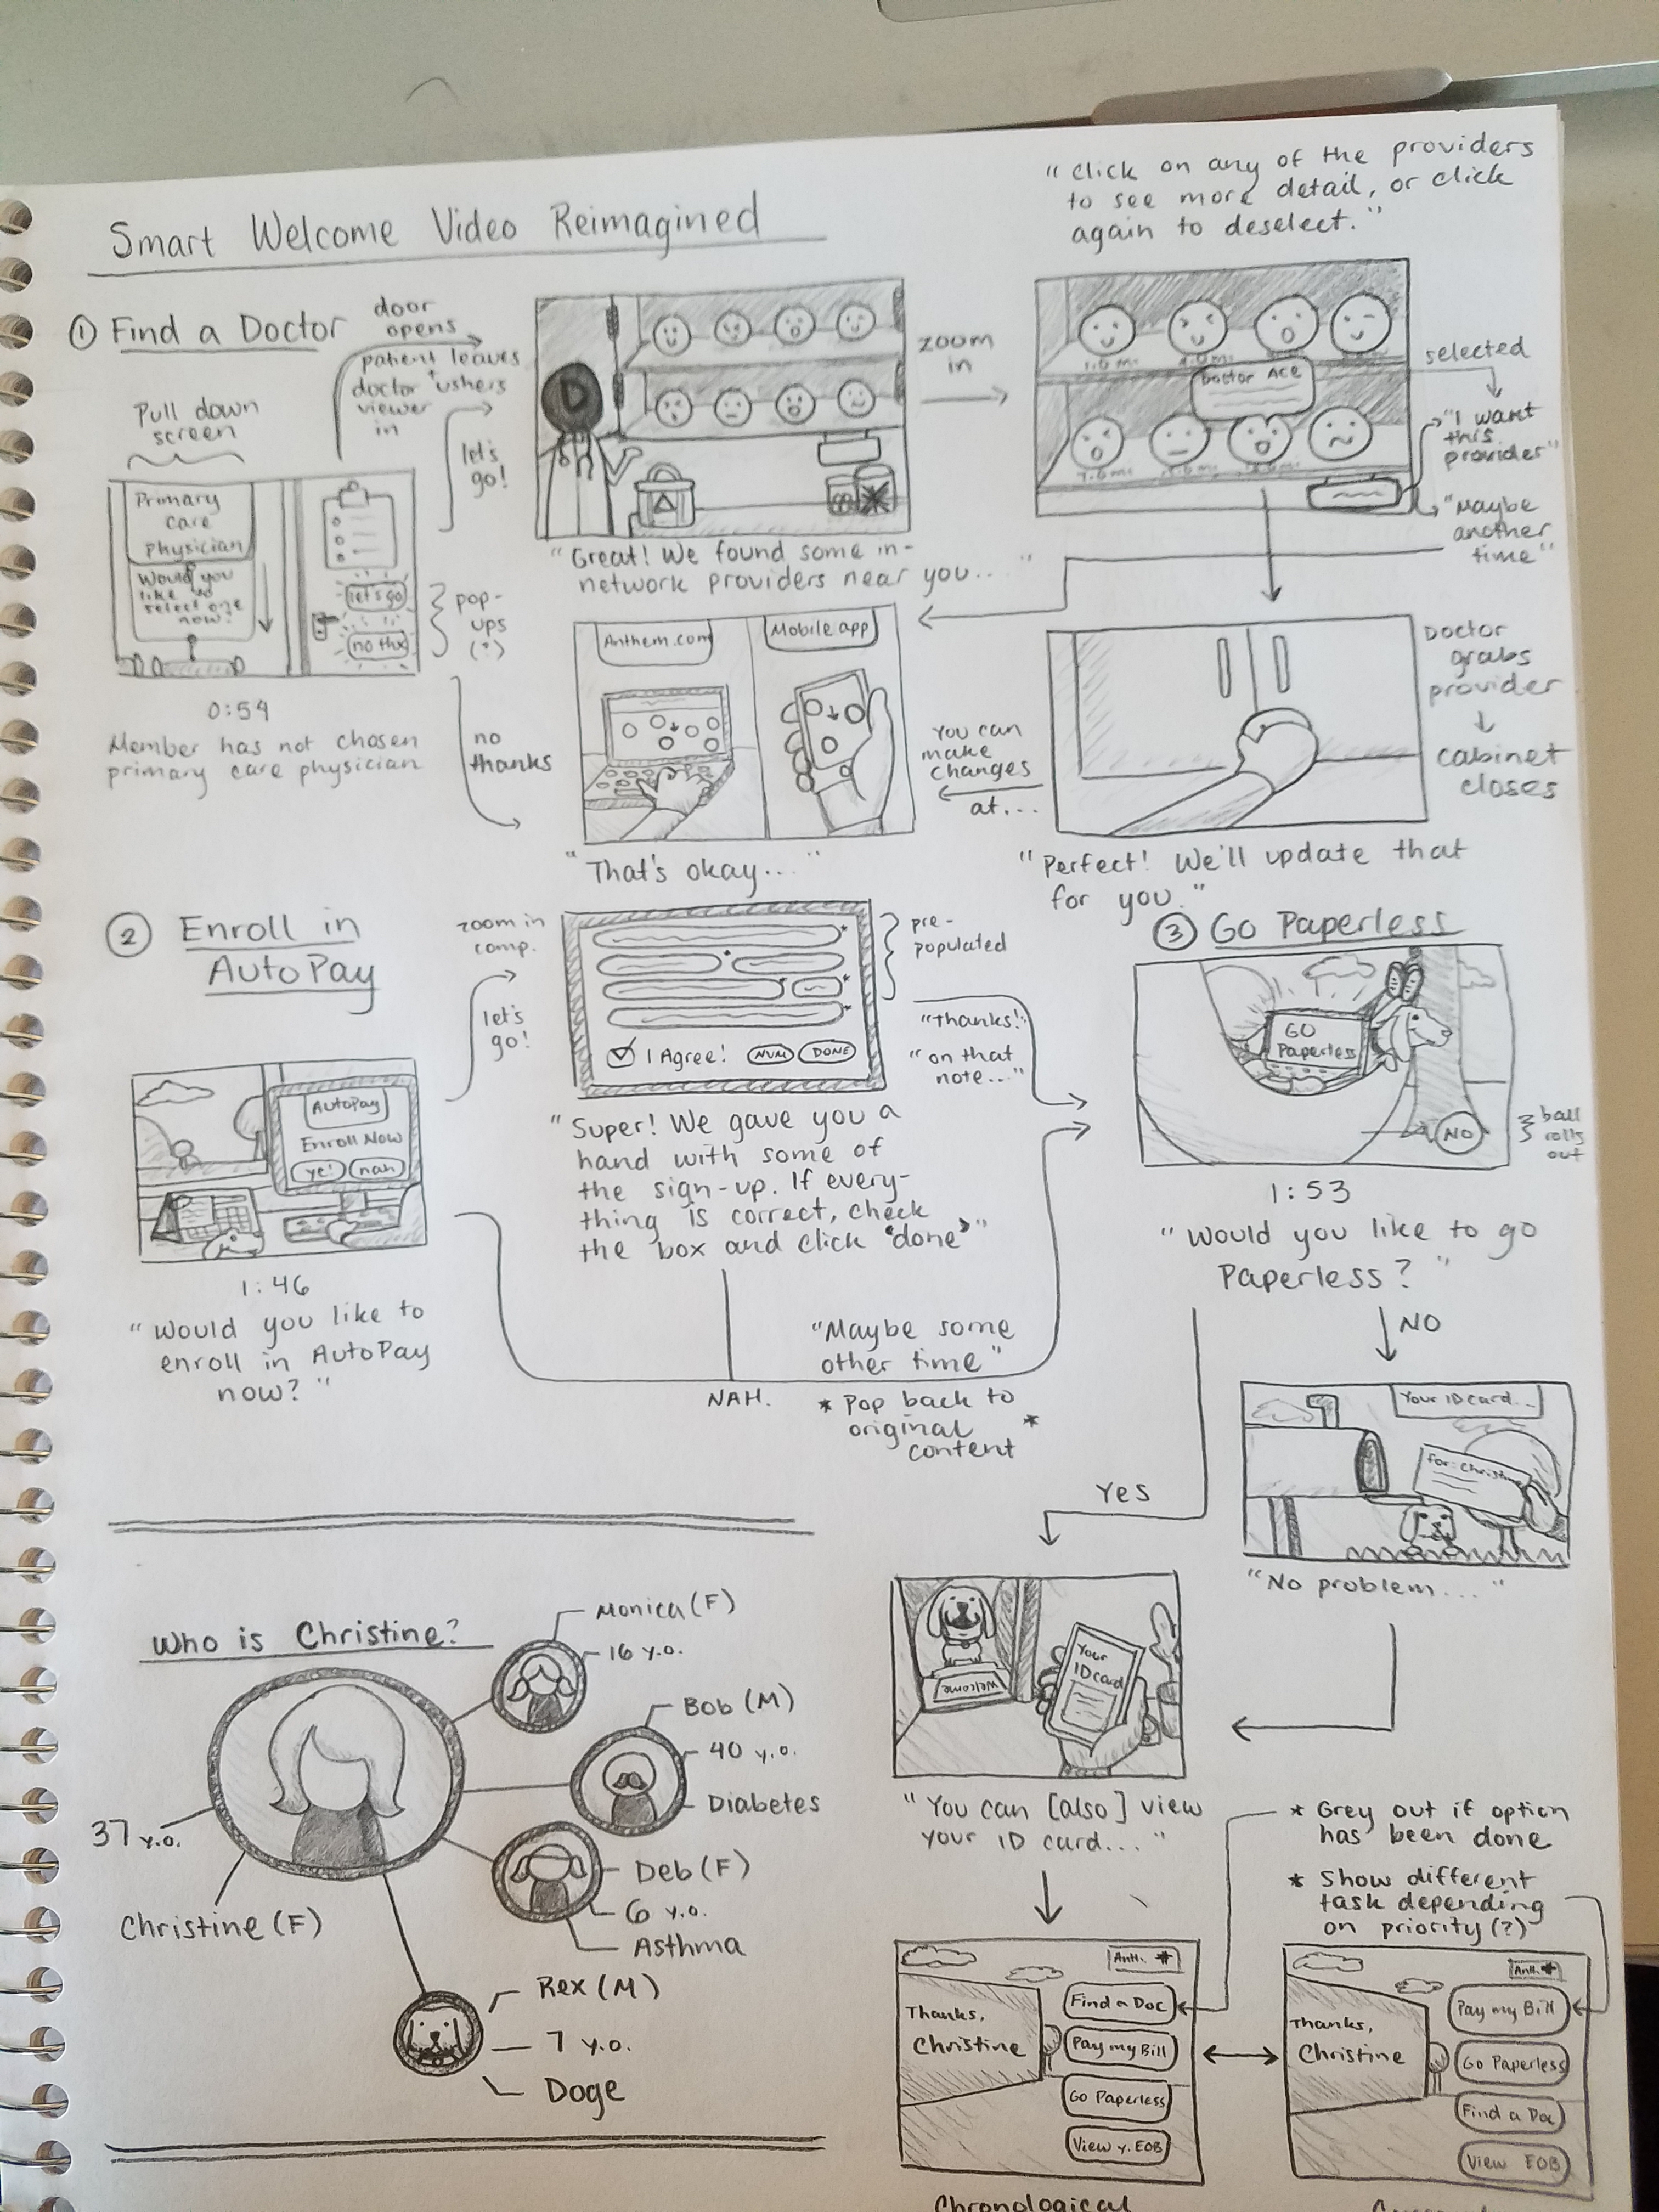 Smart Welcome Video Reimagined
① Find a Doctor
door
opens
patient leaves
doctor + ushers
viewer
in
let's
go!
Pull down
screen
Primary
Care
Physician
Would you
like to
select one
now?
let's go
no thx
pop-
ups
(?)
0:54
Member has not chosen
primary care physician
no
thanks
D
"Great! We found some in-
network providers near you...."
zoom
in
"Click on any of the providers
to see more detail, or click
again to deselect."
1.0 mi.
Doctor Ace
selected
"I want
this
provider"
"Maybe
another
time"
Doctor
grabs
provider
cabinet
closes
"Perfect! We'll update that
for you."
You can
make
changes
at...
Anthem.com
Mobile app
"That's okay..."
② Enroll in
AutoPay
AutoPay
Enroll Now
ye!
nah
1:46
"Would you like to
enroll in AutoPay
now?"
zoom in
comp.
let's
go!
* * * *
I Agree!
NVM
DONE
pre-
populated
"Super! We gave you a
hand with some of
the sign-up. If every-
thing is correct, check
the box and click 'done'"
"Thanks!"
"on that
note..."
NAH.
"Maybe some
other time"
* Pop back to
original *
content
③ Go Paperless
GO
Paperless
NO
ball
rolls
out
1:53
"Would you like to go
Paperless?"
NO
Your ID card...
for: Christine
"No problem...."
Yes
Welcome
Your
ID card
"You can [also] view
your ID card...."
* Grey out if option
has been done
* Show different
task depending
on priority (?)
Anth.
Thanks,
Christine
Find a Doc
Pay my Bill
Go Paperless
View y. EOB
Chronological
Anth.
Thanks,
Christine
Pay my Bill
Go Paperless
Find a Doc
View EOB
Who is Christine?
37 y.o.
Christine (F)
Monica (F)
16 y.o.
Bob (M)
40 y.o.
Diabetes
Deb (F)
6 y.o.
Asthma
Rex (M)
7 y.o.
Doge